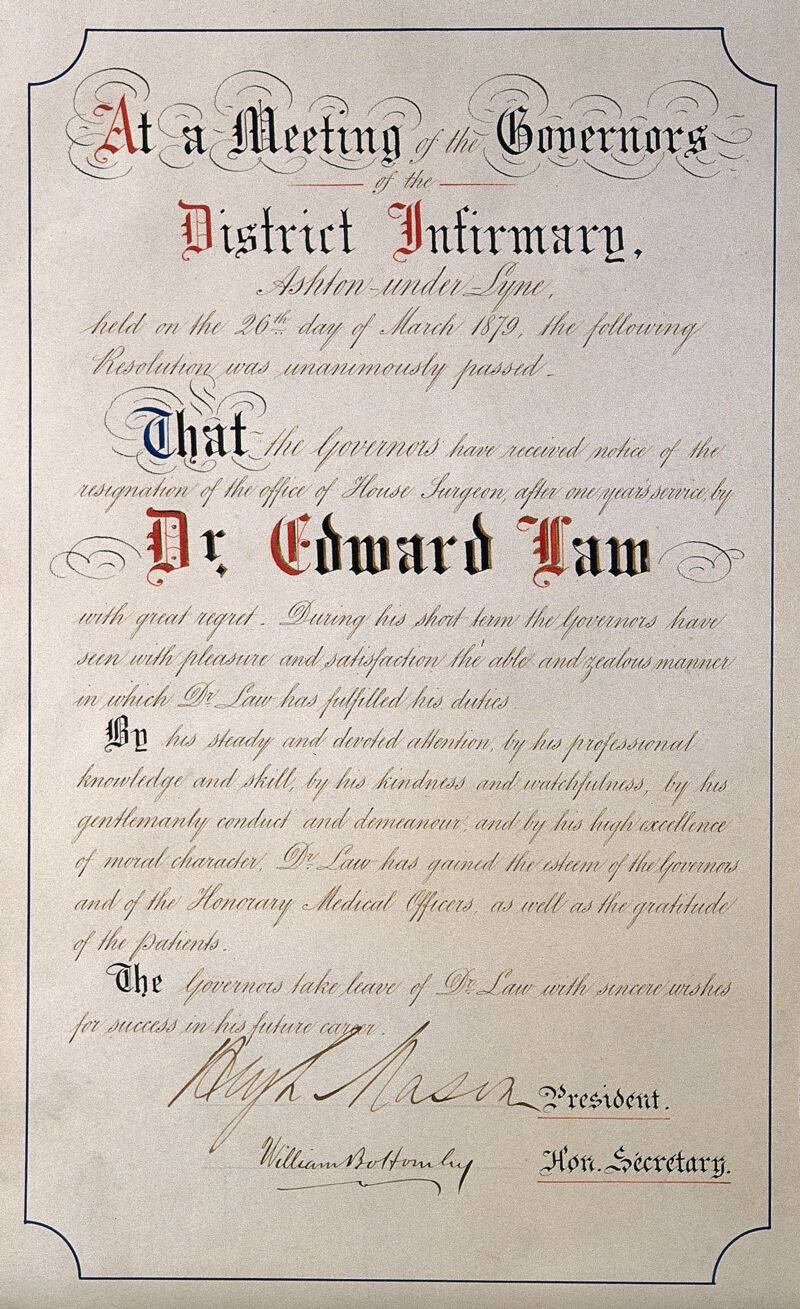 At a Meeting of the Governors
of the
District Infirmary,
Ashton-under-Lyne,
held on the 26th day of March 1879, the following
Resolution was unanimously passed -
That the Governors have received notice of the
resignation of the office of House Surgeon, after one year's service, by
Dr. Edward Law
with great regret - During his short term the Governors have
seen with pleasure and satisfaction the able and zealous manner
in which Dr Law has fulfilled his duties
By his steady and devoted attention, by his professional
knowledge and skill, by his kindness and watchfulness, by his
gentlemanly conduct and demeanour, and by his high excellence
of moral character, Dr Law has gained the esteem of the Governors
and of the Honorary Medical Officers, as well as the gratitude
of the patients.
The Governors take leave of Dr Law with sincere wishes
for success in his future career.
Hugh Mason President.
William Bottomley Hon. Secretary.